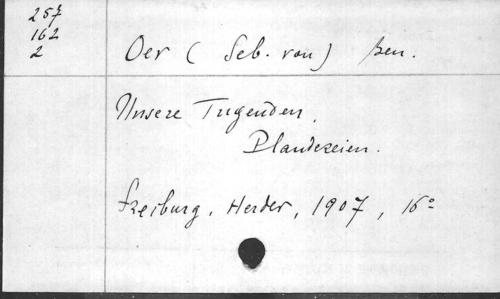 257
162
2
Oer ( Seb. von) Ben.
Unsere Tugenden.
Plaudereien.
Freiburg, Herder, 1907, 16°